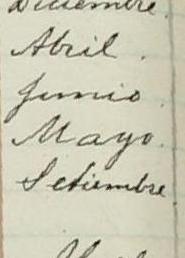 Diciembre.
Abril.
Junio
Mayo.
Setiembre